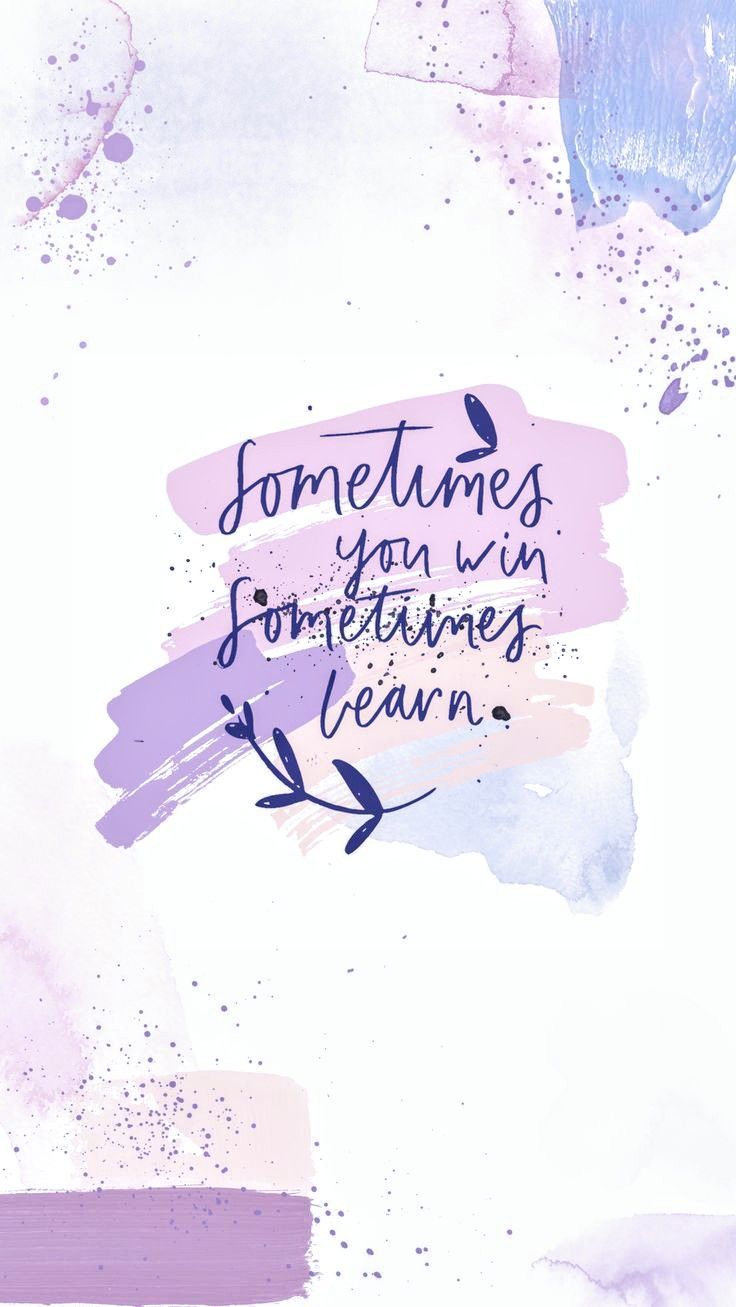 Sometimes
you win
Sometimes
learn.